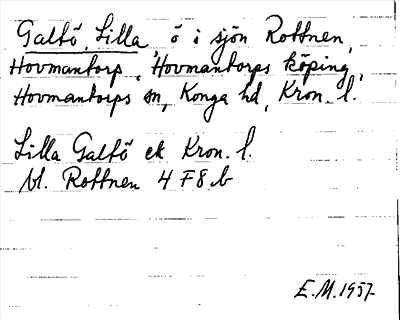 Galtö, Lilla ö i sjön Rottnen,
Hovmantorp, Hovmantorps köping,
Hovmantorps sn, Konga hd, Kron. l.
Lilla Galtö ek Kron. l.
bl. Rottnen 4 F8 b
E.M. 1957